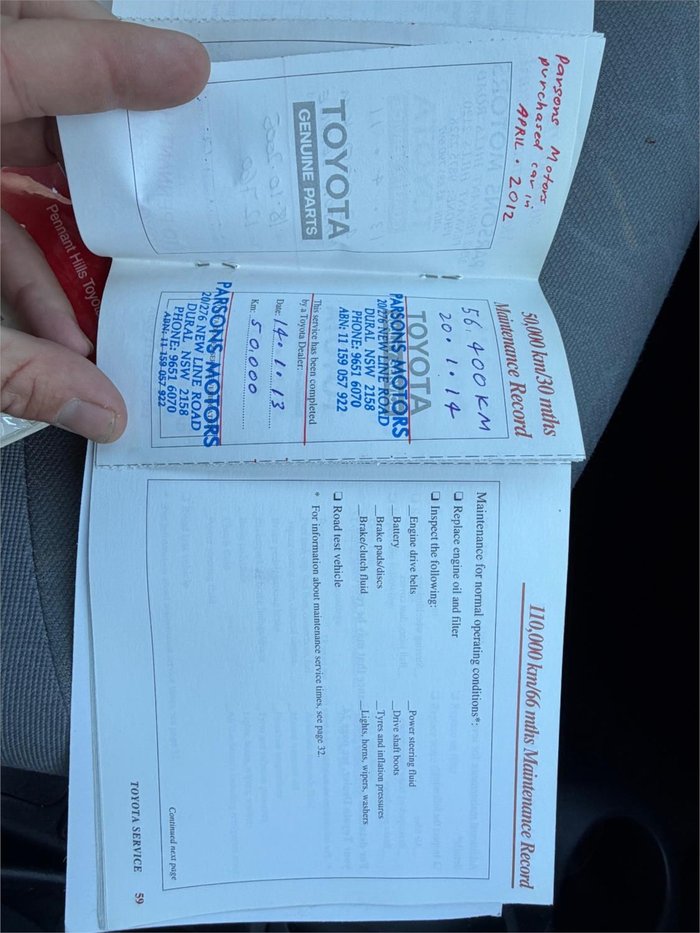 Parsons Motors
purchased car in
APRIL . 2012
TOYOTA
GENUINE PARTS
Pennant Hills Toyota
50,000 km/30 mths
Maintenance Record
56.400 KM
20.1.14
TOYOTA
PARSONS MOTORS
20/276 NEW LINE ROAD
DURAL NSW 2158
PHONE: 9651 6070
ABN: 11 159 057 922
This service has been completed
by a Toyota Dealer:
Date: 14.1.13
Km: 50,000
PARSONS MOTORS
20/276 NEW LINE ROAD
DURAL NSW 2158
PHONE: 9651 6070
ABN: 11 159 057 922
110,000 km/66 mths Maintenance Record
Maintenance for normal operating conditions*:
❏ Replace engine oil and filter
❏ Inspect the following:
_Engine drive belts _Power steering fluid
_Battery _Drive shaft boots
_Brake pads/discs _Tyres and inflation pressures
_Brake/clutch fluid _Lights, horns, wipers, washers
❏ Road test vehicle
* For information about maintenance service times, see page 32.
Continued next page
TOYOTA SERVICE 59